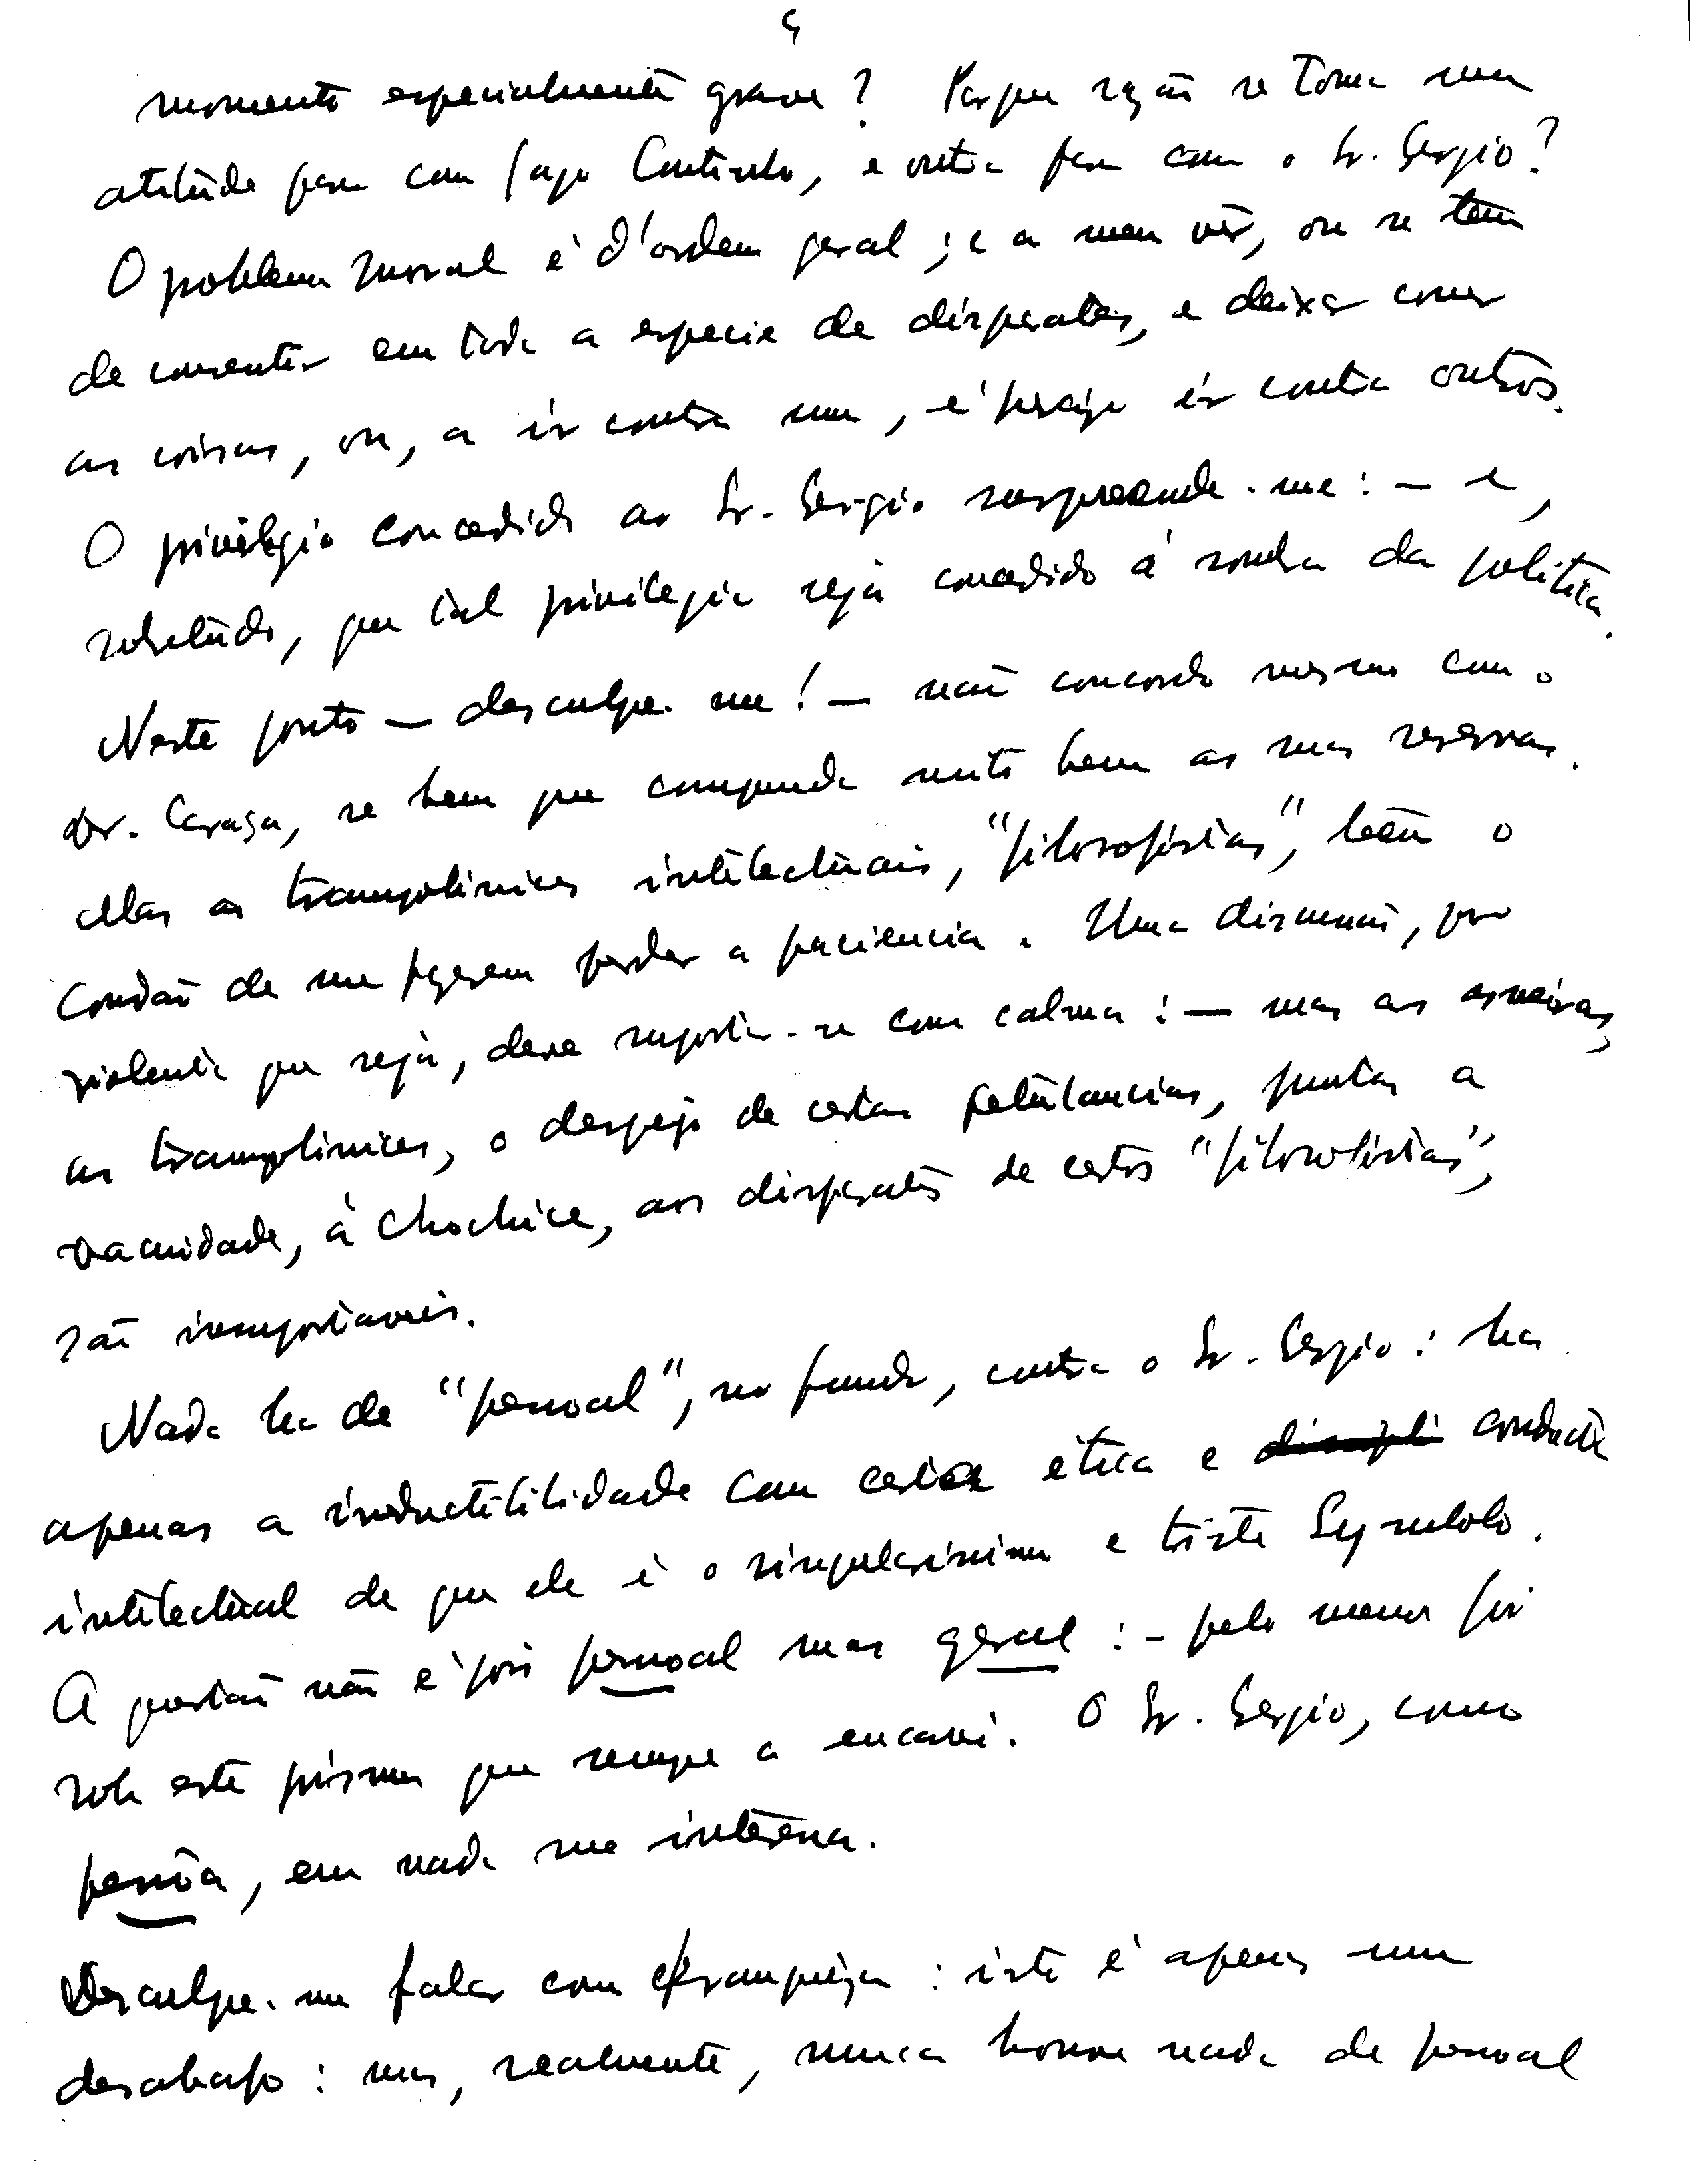 5
momento especialmente grave? Porque razão se toma uma
atitude para com Iago Contrulo, e outra para com o Sr. Sergio?
O problema moral é d'ordem geral; e a meu vêr, ou se tem
de consentir em toda a especie de disparates, e deixar correr
as coisas, ou, a ir contra um, é preciso ir contra outros.
O privilegio concedido ao Sr. Sergio surpreende-me: – e,
sobretudo, que tal privilegio seja concedido á sombra da politica.
Neste ponto – desculpe-me! – não concordo mesmo com o
Dr. Caraça, se bem que compreenda muito bem as suas reservas.
Mas as trampolinices intelectuais, "filosofistas", teem o
condão de me fazerem perder a paciencia. Uma discussão, por
violenta que seja, deve suportar-se com calma: – mas as asneiras,
as trampolinices, o despejo de certas petulancias, juntas a
vacuidade, á chochice, aos disparates de certos "filosofistas",
são insuportaveis.
Nada ha de "pessoal", no fundo, contra o Sr. Sergio: ha
apenas a inductilidade com certa ética e conducta
intelectual de que ele é o singularissimo e triste Symbolo.
A questão não é pois pessoal mas geral: – pelo menos foi
sob este prisma que sempre a encarei. O Sr. Sergio, como
pessôa, em nada me interessa.
Desculpe-me falar com franqueza: isto é apenas um
desabafo: mas, realmente, nunca houve nada de pessoal